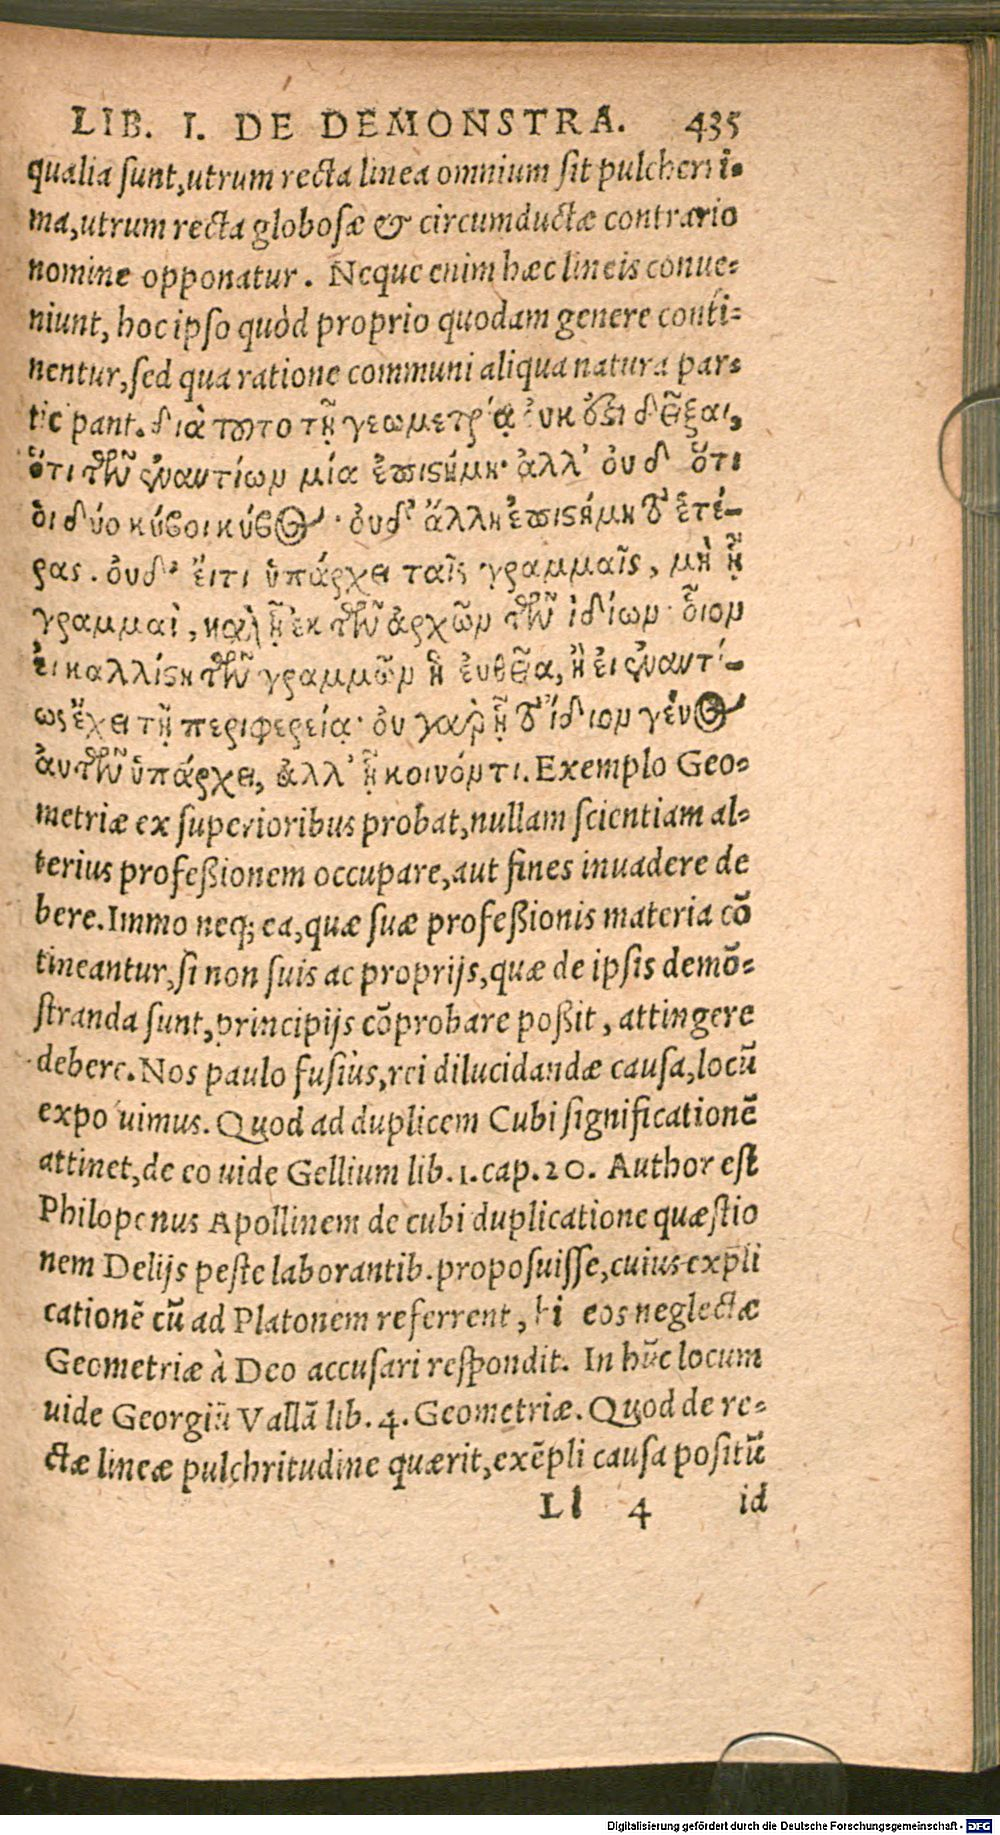 LIB. I. DE DEMONSTRA. 435
qualia sunt, utrum recta linea omnium sit pulcherri-
ma, utrum recta globosæ & circumductæ contrario
nomine opponatur. Neque enim hæc lineis conue-
niunt, hoc ipso quòd proprio quodam genere conti-
nentur, sed qua ratione communi aliqua natura par-
tic pant. διὰ τοῦτο τῇ γεωμετρίᾳ οὐκ ἔστι δεῖξαι,
ὅτι τῶν ἐναντίων μία ἐπιστήμη· ἀλλ' οὐδ' ὅτι
ὁι δύο κύβοι κύβος· οὐδ' ἄλλη ἐπιστήμη τὸ ἑτέ-
ρας. οὐδ' εἴ τι ὑπάρχει ταῖς γραμμαῖς, μὴ ᾗ
γραμμαὶ, καὶ ᾗ ἐκ τῶν ἀρχῶν τῶν ἰδίων· οἷον
εἰ καλλίστη τῶν γραμμῶν ἡ εὐθεῖα, ἢ εἰ ἐναντί-
ως ἔχει τῇ περιφερείᾳ· οὐ γὰρ ᾗ τὸ ἴδιον γένος
αυτῶν ὑπάρχει, ἀλλ' ᾗ κοινόν τι. Exemplo Geo-
metriæ ex superioribus probat, nullam scientiam al-
terius professionem occupare, aut fines inuadere de
bere. Immo neq; ea, quæ suæ professionis materia cō
tineantur, si non suis ac proprijs, quæ de ipsis demō-
stranda sunt, principijs cōprobare possit, attingere
debere. Nos paulo fusiùs, rei dilucidandæ causa, locū
expo uimus. Quod ad duplicem Cubi significationē
attinet, de eo uide Gellium lib. 1. cap. 20. Author est
Philoponus Apollinem de cubi duplicatione quæstio
nem Delijs peste laborantib. proposuisse, cuius expli
cationē cū ad Platonem referrent, hi eos neglectæ
Geometriæ à Deo accusari respondit. In hūc locum
uide Georgiū Vallā lib. 4. Geometriæ. Quod de re-
ctæ lineæ pulchritudine quærit, exēpli causa positū
Ll 4 id
Digitalisierung gefördert durch die Deutsche Forschungsgemeinschaft - DFG